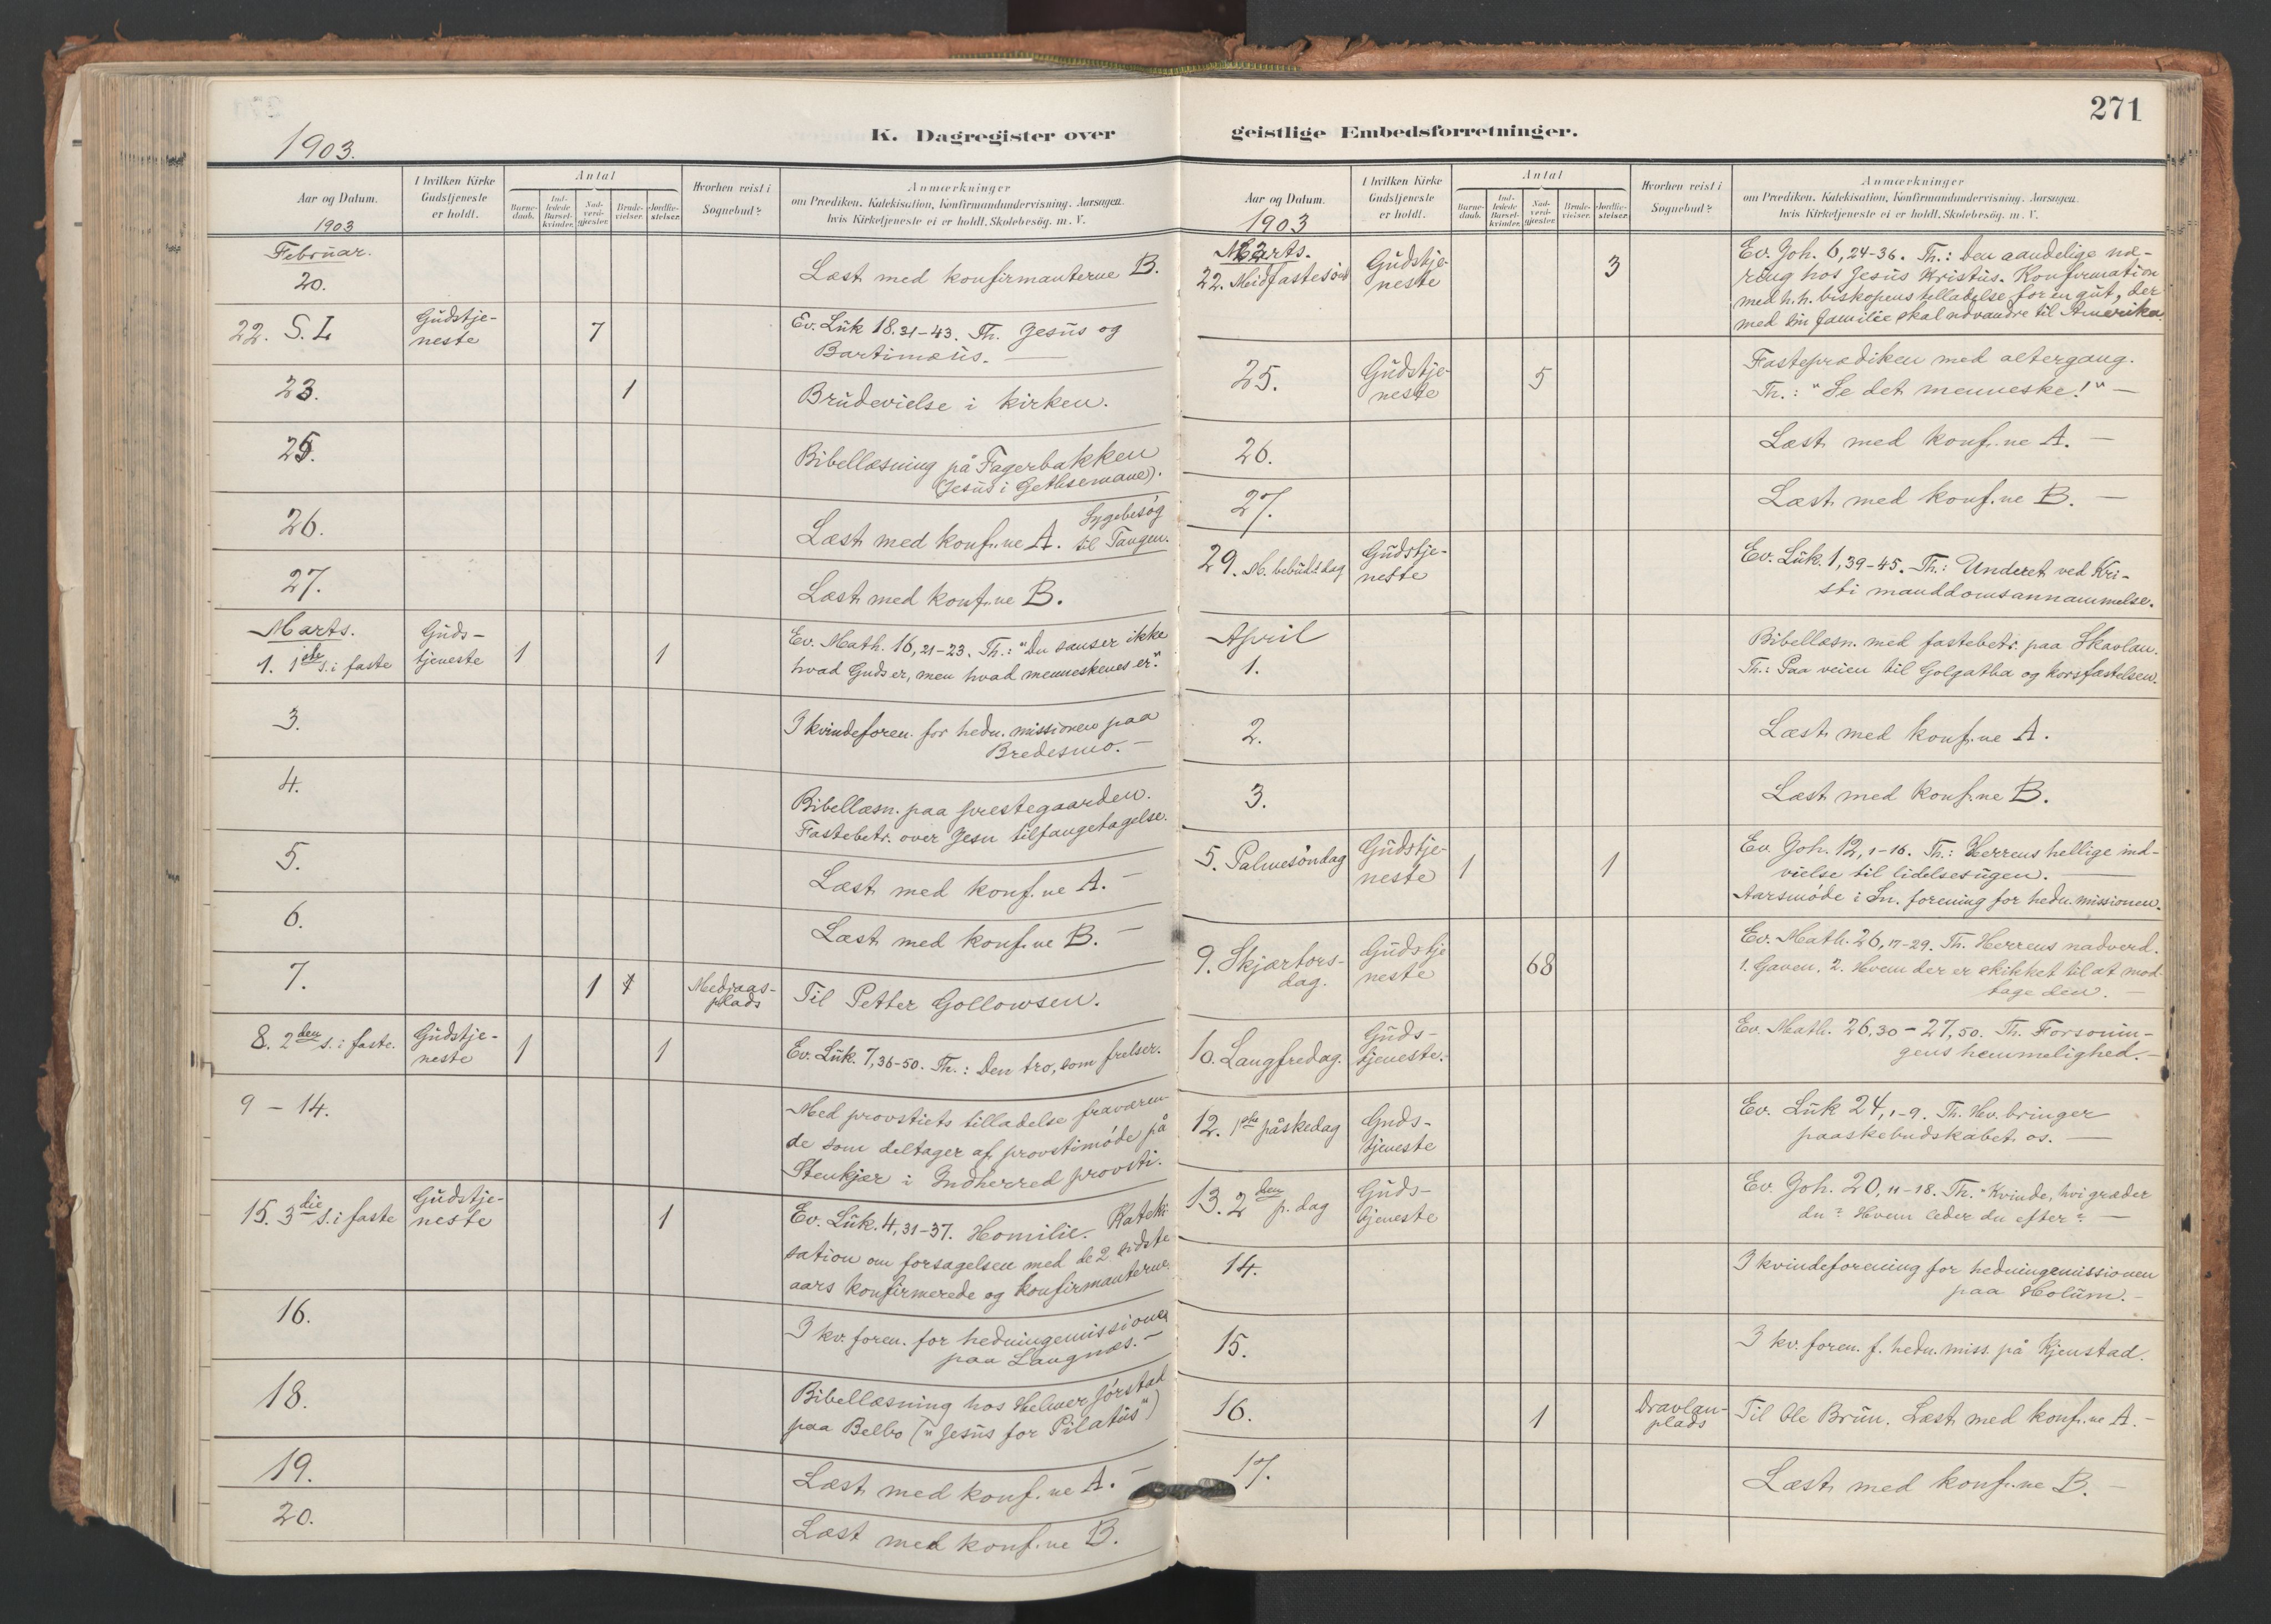 271
1903.
K. Dagregister over
Aar og Datum.
1903
I hvilken Kirke
Gudstjeneste
er holdt.
Antal
Barne-
daab.
Ind-
ledede
Barsel-
kvinder.
Nad-
verd-
gjester.
Brude-
vielser.
Jordfæ-
stelser.
Hvorhen reist i
Sognebud?
Anmærkninger
om Prædiken, Katekisation, Konfirmandundervisning, Aarsagen,
hvis Kirketjeneste ei er holdt, Skolebesøg. m. V.
Februar.
20.
Læst med konfirmanterne B.
22. S. I.
Gudstje-
neste
7
Ev. Luk 18.31-43. Th. Jesus og
Bartimæus. —
23.
1
Brudevielse i kirken.
25.
Bibellæsning på Fagerbakken
(Jesus i Gethsemane).
26.
Læst med konf.ne A.
Sygebesøg
til Tangen.
27.
Læst med konf.ne B.
Marts.
1. 1ste s. i faste
Guds-
tjeneste
1
1
Ev. Math. 16,21-23. Th.: "Du sanser ikke
hvad Guds er, men hvad menneskenes er."
3.
I kvindeforen. for hedn. missionen paa
Bredesmo. —
4.
Bibellæsn. paa prestegaarden.
Fastebetr. over Jesu tilfangetagelse.
5.
Læst med konf.ne A. —
6.
Læst med konf.ne B. —
7.
1
1
Medjaas-
plads
Til Petter Gollowsen.
8. 2den s. i faste.
Gudstje-
neste
1
1
Ev. Luk. 7,36-50. Th.: Den tro, som frelser.
9 - 14.
Med provstiets tilladelse fraværen-
de som deltager af provstimøde på
Stenkjær i Indherred provsti.
15. 3die s. i faste
Gudstje-
neste
1
Ev. Luk. 4,31-37. Homilie. Kateki-
sation om forsagelsen med de 2 sidste
aars konfirmerede og konfirmanterne.
16.
I kv. foren. for hedningemissionen
paa Langnæs. —
18.
Bibellæsning hos Helmer Jørstad
paa Belbo ("Jesus for Pilatus")
19.
Læst med konf.ne A. —
20.
Læst med konf.ne B.
geistlige Embedsforretninger.
Aar og Datum.
1903
I hvilken Kirke
Gudstjeneste
er holdt.
Antal
Barne-
daab.
Ind-
ledede
Barsel-
kvinder.
Nad-
verd-
gjester.
Brude-
vielser.
Jordfæ-
stelser.
Hvorhen reist i
Sognebud?
Anmærkninger
om Prædiken, Katekisation, Konfirmandundervisning, Aarsagen,
hvis Kirketjeneste ei er holdt, Skolebesøg. m. V.
Marts.
22. Midfastesønd
Gudstje-
neste
3
Ev. Joh. 6,24-36. Th.: Den aandelige næ-
ring hos Jesus Kristus. Konfirmation
med h. h. biskopens tilladelse for en gut, der
med sin familie skal udvandre til Amerika.
25.
Gudstje-
neste
5
Fasteprædiken med altergang.
Th.: "Se det menneske!" —
26.
Læst med konf.ne A. —
27.
Læst med konf.ne B. —
29. M. bebud.s dag
Gudstje-
neste
Ev. Luk. 1,39-45. Th.: Underet ved Kri-
sti manddomsannammelse.
April
1.
Bibellæsn. med fastebetr. paa Skavlan.
Th.: Paa veien til Golgatha og korsfæstelsen.
2.
Læst med konf.ne A.
3.
Læst med konf.ne B.
5. Palmesøndag
Gudstje-
neste
1
1
Ev. Joh. 12,1-16. Th.: Herrens hellige ind-
vielse til lidelsesugen. —
Aarsmøde i Sn. forening for hedn. missionen.
9. Skjærtors-
dag.
Gudstje
neste
68
Ev. Math. 26,17-29. Th. Herrens nadverd.
1. Gaven. 2. Hvem der er skikket til at mod-
tage den. —
10. Langfredag.
Guds-
tjeneste.
Ev. Math. 26,30 - 27,50. Th. Forsonin-
gens hemmelighed. —
12. 1ste påskedag
Guds-
tjeneste
Ev. Luk 24,1-9. Th. Hv. bringer
paaskebudskabet os. —
13. 2den p. dag
Guds-
tjeneste
Ev. Joh. 20,11-18. Th. "Kvinde, hvi græder
du? Hvem leder du efter? —
14.
I kvindeforening for hedningemissionen
paa Holum. —
15.
I kv. foren. f. hedn. miss. på Kjenstad.
16.
1
Dravlan-
plads
Til Ole Brun. Læst med konf.ne A. —
17.
Læst med konf.ne B. —